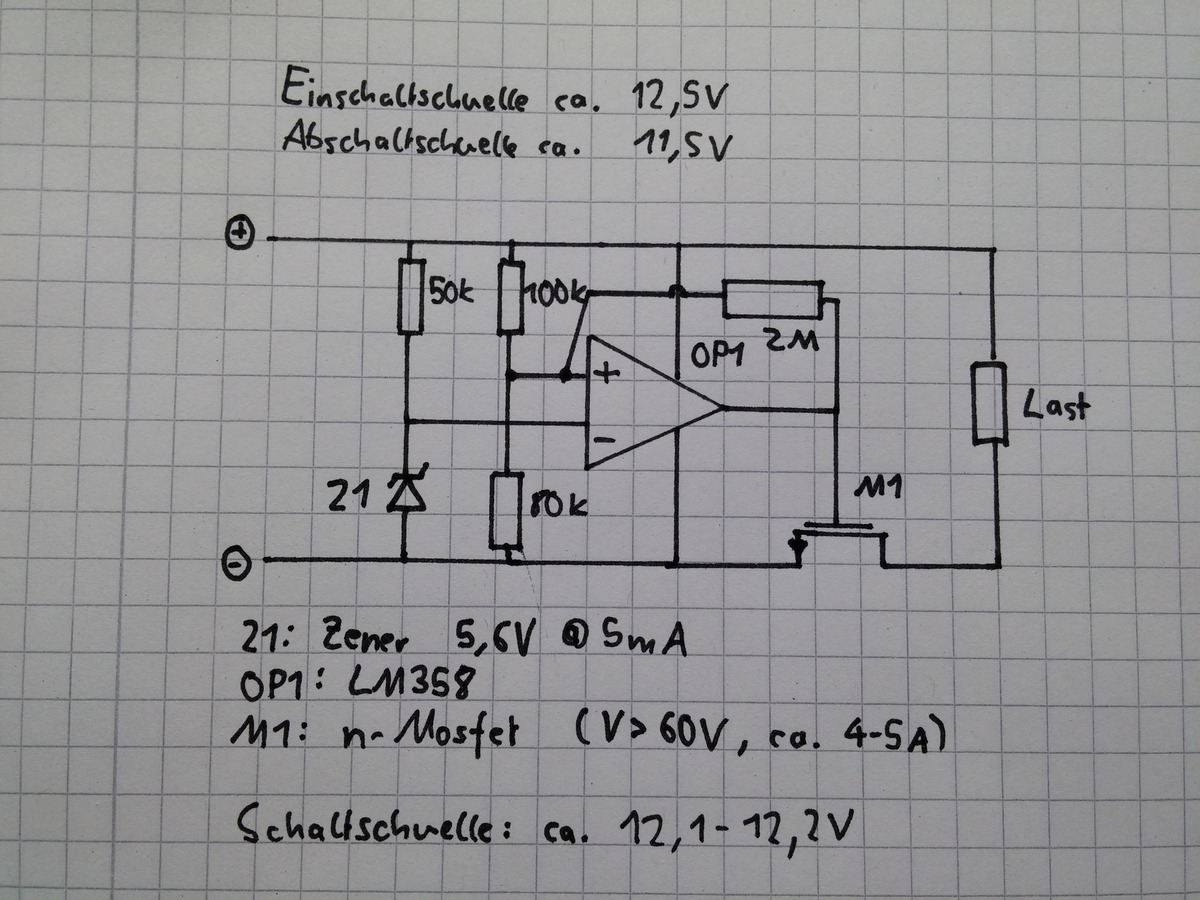 Einschaltschwelle ca. 12,5V
Abschaltschwelle ca. 11,5V
+
50k
100k
2M
OP1
+
Last
-
M1
Z1
80k
-
Z1: Zener 5,6V @ 5mA
OP1: LM358
M1: n-Mosfet (V> 60V, ca. 4-5A)
Schaltschwelle: ca. 12,1-12,2V